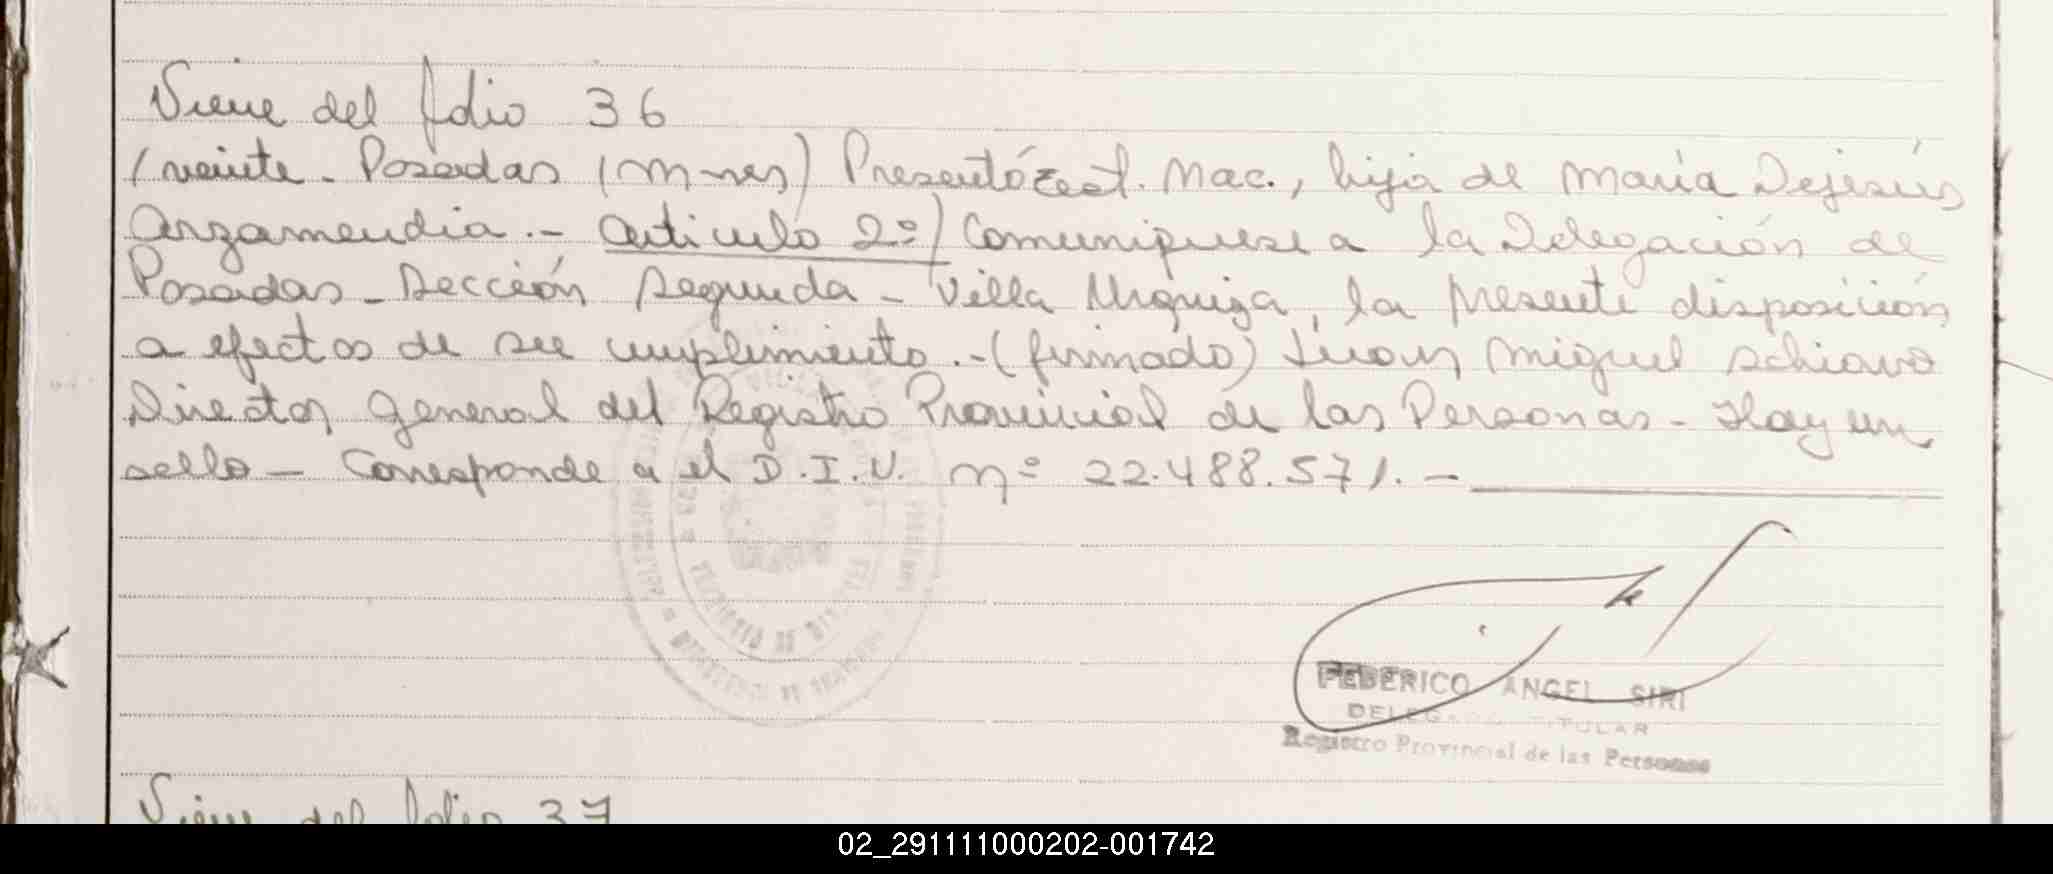 Viene del folio 36
/veinte - Posadas (M-nes) Presentó Cert. Nac., hija de María Dejesús
Arzamendia .- Artículo 2º) Comuniquese a la Delegación de
Posadas - Sección Segunda - Villa Urquiza, la presente disposición
a efectos de su cumplimiento .- (firmado) Juan Miguel Schiavo
Director General del Registro Provincial de las Personas - Hay un
sello - Corresponde a el D.I.U. nº 22.488.571. -
FEDERICO ANGEL SIRI
DELEGADO TITULAR
Registro Provincial de las Personas
Viene del folio 37
02_291111000202-001742